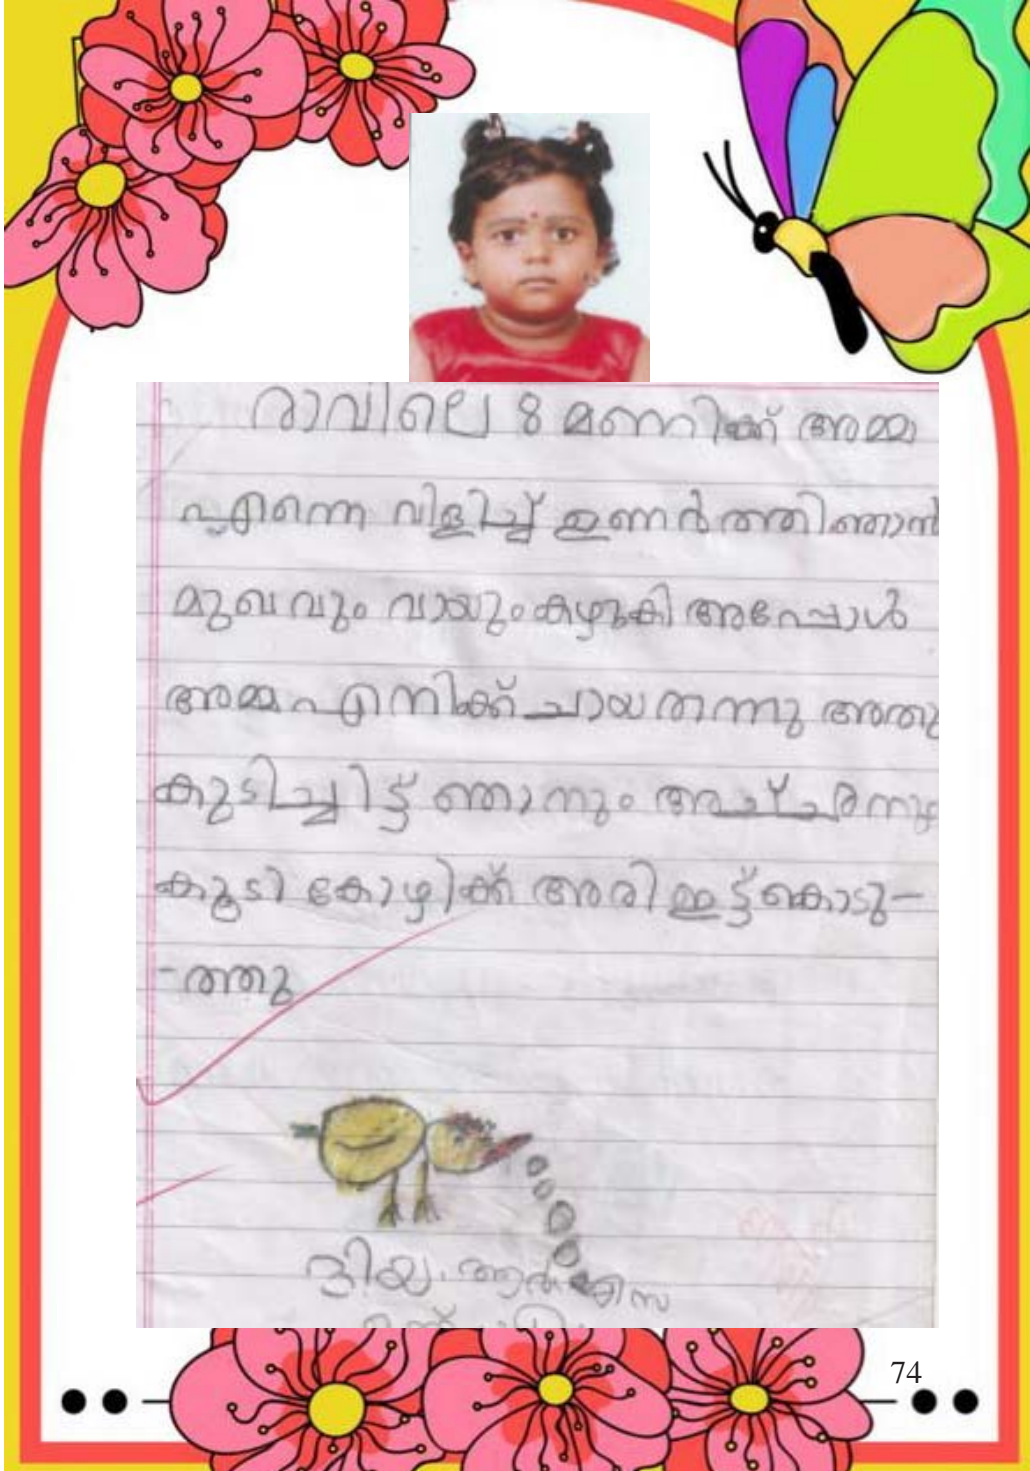 രാവിലെ 8 മണിക്ക് അമ്മ
എന്നെ വിളിച്ച് ഇണർത്തി ഞാൻ
മുഖവും വായും കഴുകി അപ്പോൾ
അമ്മ എനിക്ക് ചായ തന്നു അതു
കുടിച്ചിട്ട് ഞാനും അച്ഛനും
കൂടി കോഴിക്ക് അരി ഇട്ട് കൊടു-
-ത്തു
ദിയ.ആർ
74